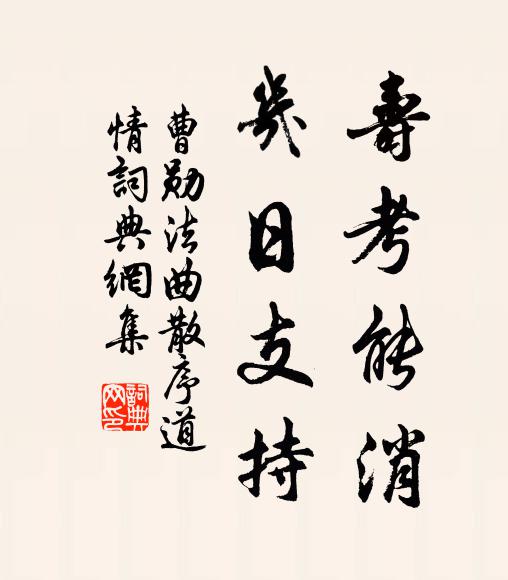 壽考能消
幾日支持
曹勛法曲散序道
情詞典網集
詞典
网印